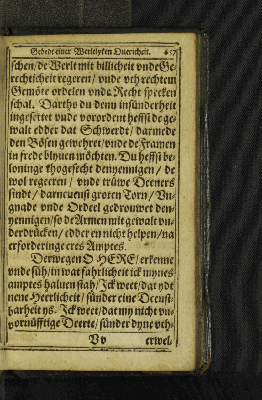 Gebede einer Werlelyken Ouericheit. 637
schen/de Werlt mit billicheit vnde Ge-
rechticheit regeren/ vnde vth rechtem
Gemöte ordelen vnde Recht spreken
schal. Dartho du denn insünderheit
ingesettet vnde vorordent heffst de ge-
walt edder dat Schwerdt/ darmede
den Bösen gewehret/vnde de Framen
in frede blyuen möchten. Du heffst be-
loninge thogesecht dennyennigen/ de
wol regeeren/ vnde trüwe Deeners
sindt/ darneuenst groten Torn/ Vn-
gnade vnde Ordeel gedrouwet den-
yennigen/so de Armen mit gewalt vn-
derdrücken/edder en nicht helpen/na
erforderinge eres Amptes.
Derwegen O HERE/erkenne
vnde süh/in wat fahrlicheit ick mynes
amptes haluen stah/Ick weet/dat ydt
nene Heerlicheit/ sünder eine Deenst-
barheit ys. Ick weet/dat my nicht vn-
vornüfftige Deerte/ sünder dyne vth-
Vv erwel-